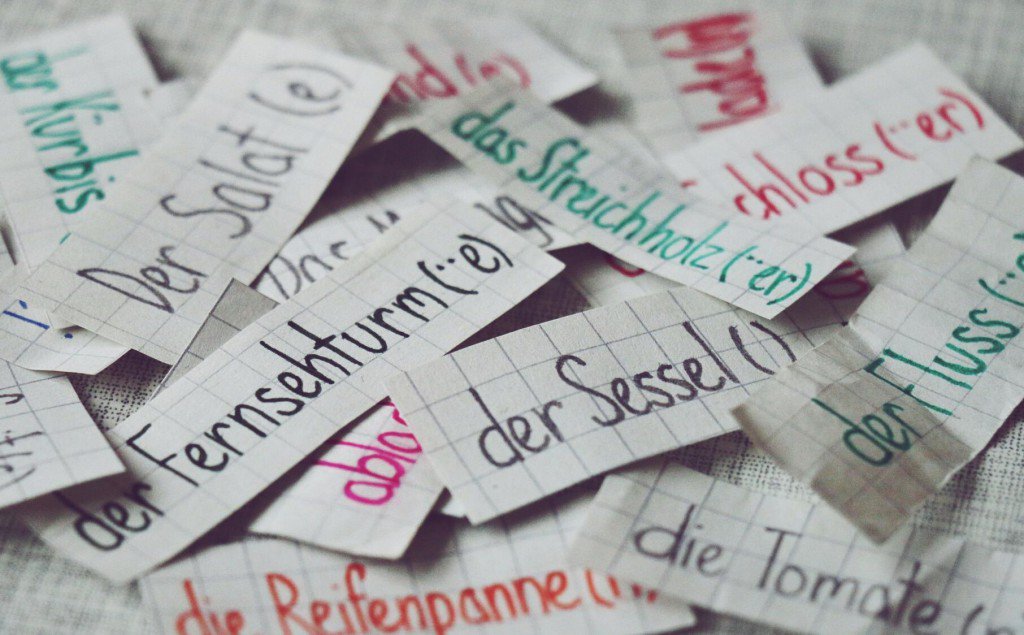 der Kürbis
Der Salat (e)
das Streichholz (¨er)
chloss (¨er)
Das
der Fernsehturm (¨e)
der Sessel ()
der Fluss (¨e
ablo
die Tomate (
die Reifenpanne (n